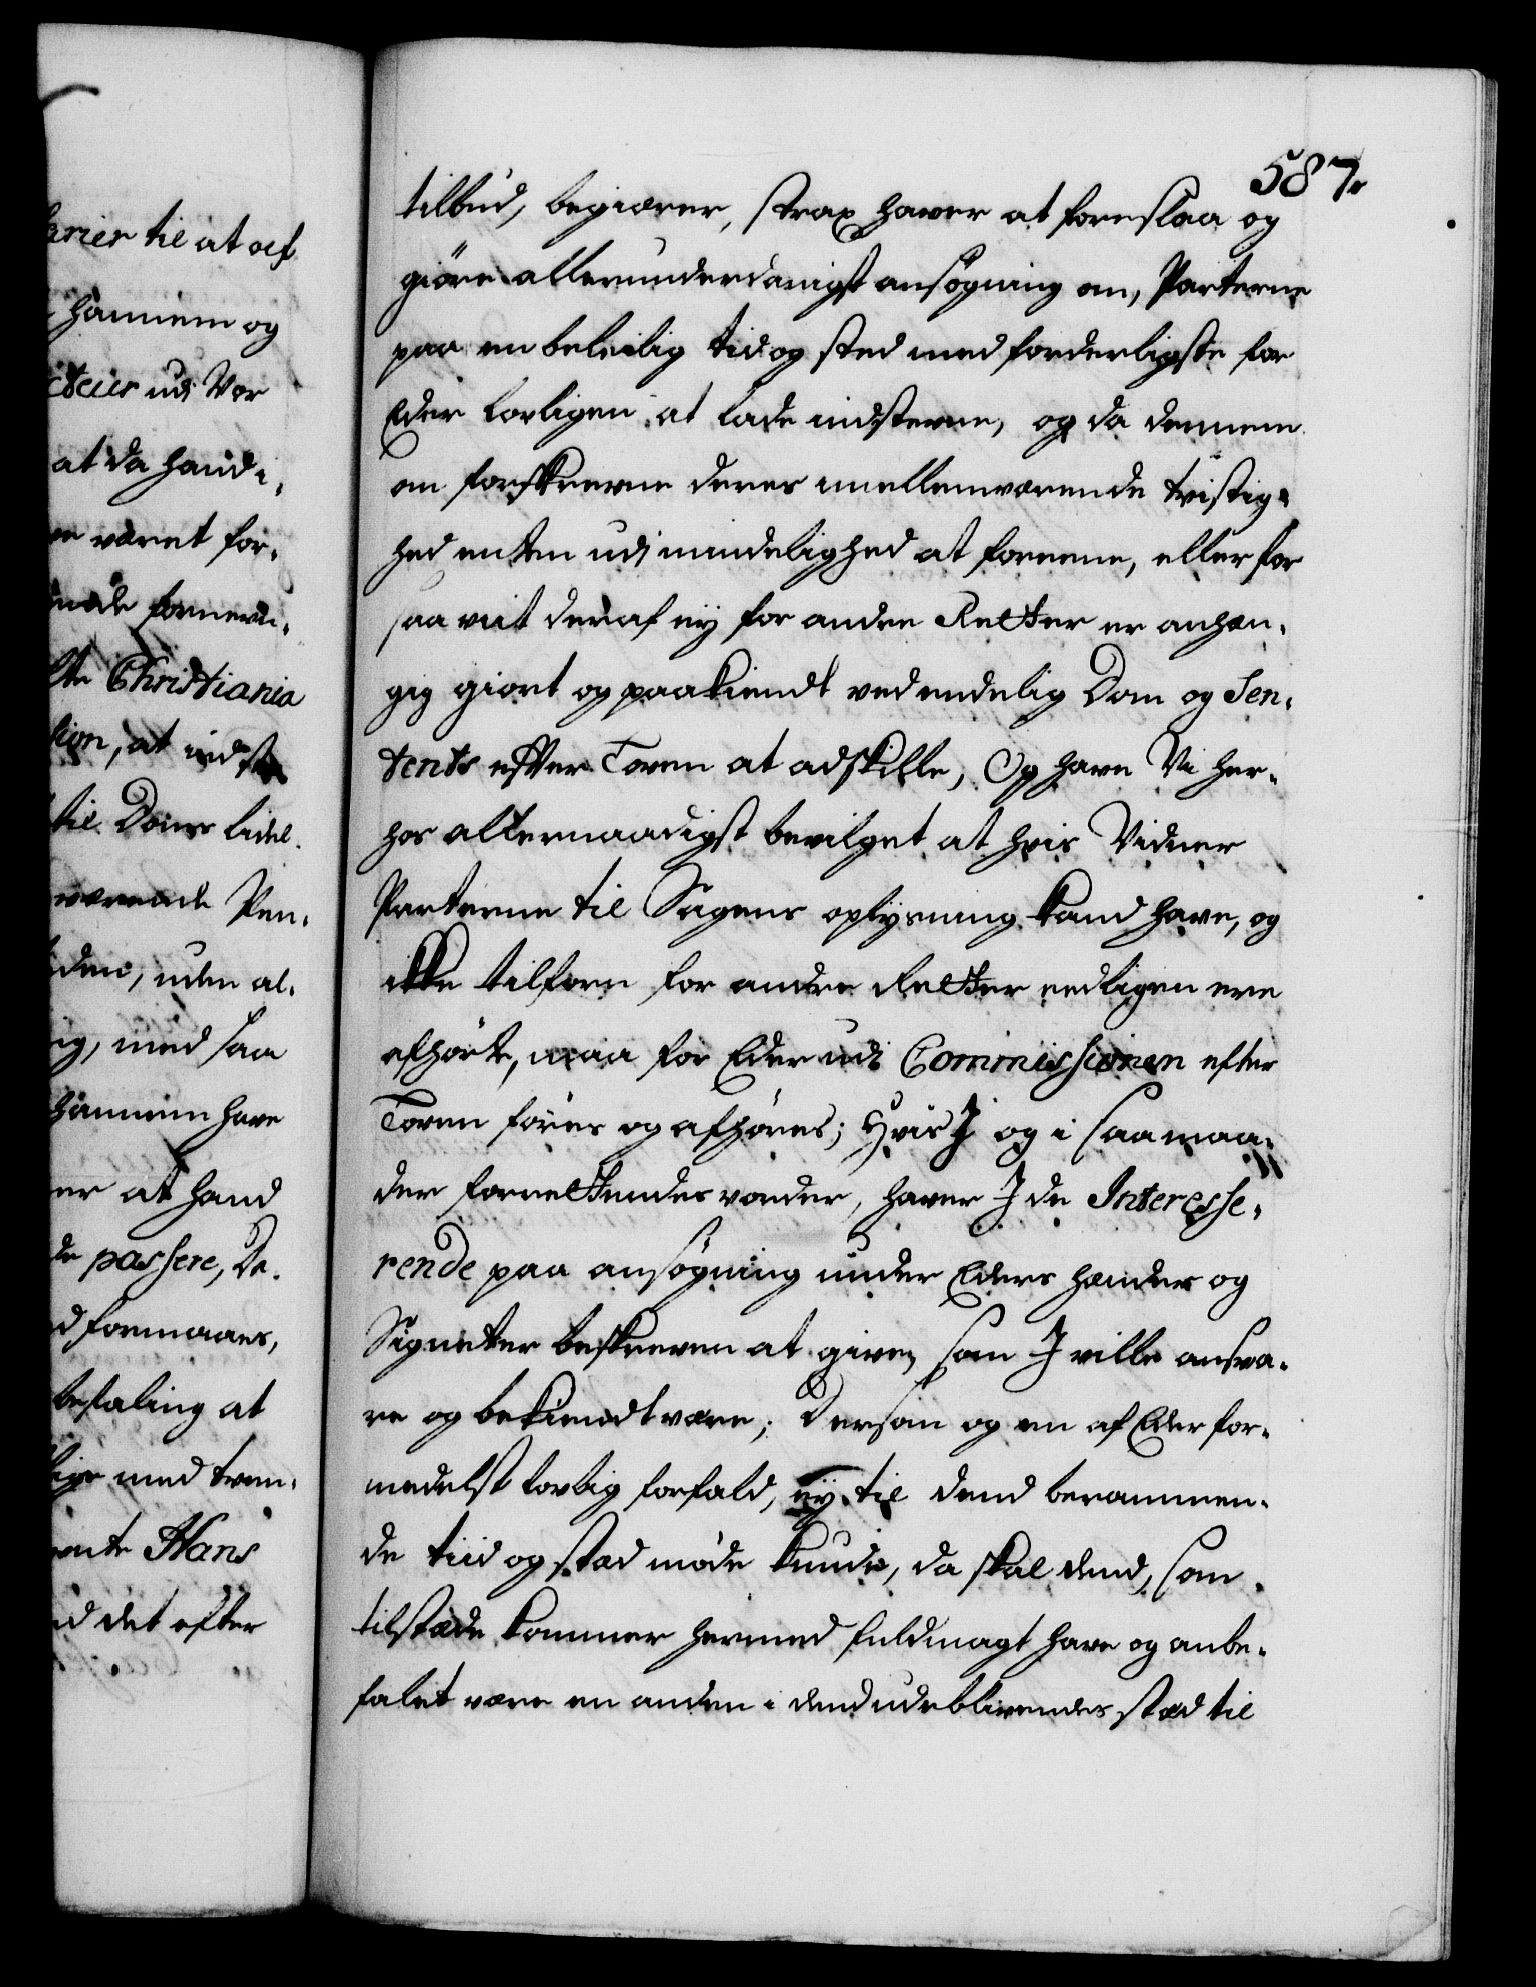 arier til at af
hannem og
cteur udi Vor
at da hand i,
ve været for,
Christiania
lion, at indst
til Doms lidel
værende Pen,
den, uden al,
ig, med saa
hannem have
er at hand
de passere, De,
d formaaes,
befaling at
lige med tven,
Hans
d det efter
587.
tilbud, begiærer, strax haver at foreslaa og
giöre allerunderdanigst ansøgning om, Parterne
paa en beleilig tid og sted med forderligste for
Eder lovligen at lade indstevne, og da dennem
om forskrevne deres imellemværende tvistig,
hed enten udi mindelighed at foreene, eller for
saa vit deraf ey for andre Retter er anhæn,
gig giort og paakiendt ved endelig Dom og Sen,
tents efter Loven at adskille, Og have Vi her,
hos allernaadigst bevilget at hvis Vidner
Parterne til Sagens oplysning kand have, og
ikke tilforn for andre Retter eedligen ere
afhørte, maa for Eder udi Commissionen efter
Loven føres og afhøres; Hvis J og i saa maa,
der forrettendes vorder, haver J de Interesse,
rende paa ansøgning under Eders hænder og
Signeter beskreven at give, som J ville ansva,
re og bekiendt være; Dersom og en af Eder for,
medelst lovlig forfald, ey til dend berammen,
de tiid og stæd møde kunde, da skal dend, som
tilstæde kommer hermed fuldmagt have og anbe,
falet være en anden i dend udeblivendes stæd til